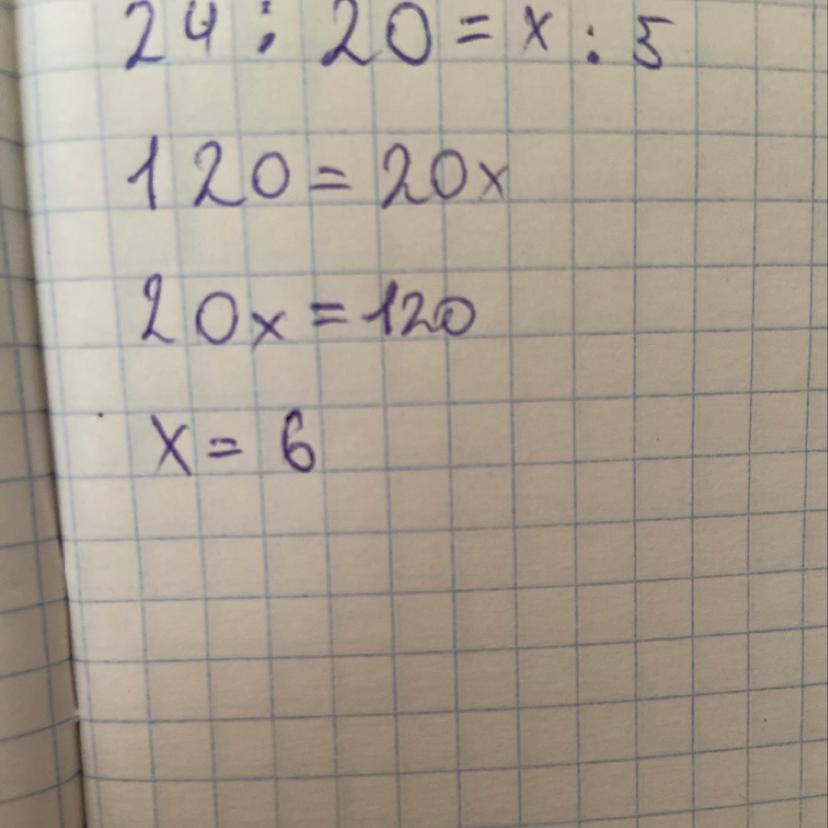 24 : 20 = x : 5
120 = 20x
20x = 120
x = 6